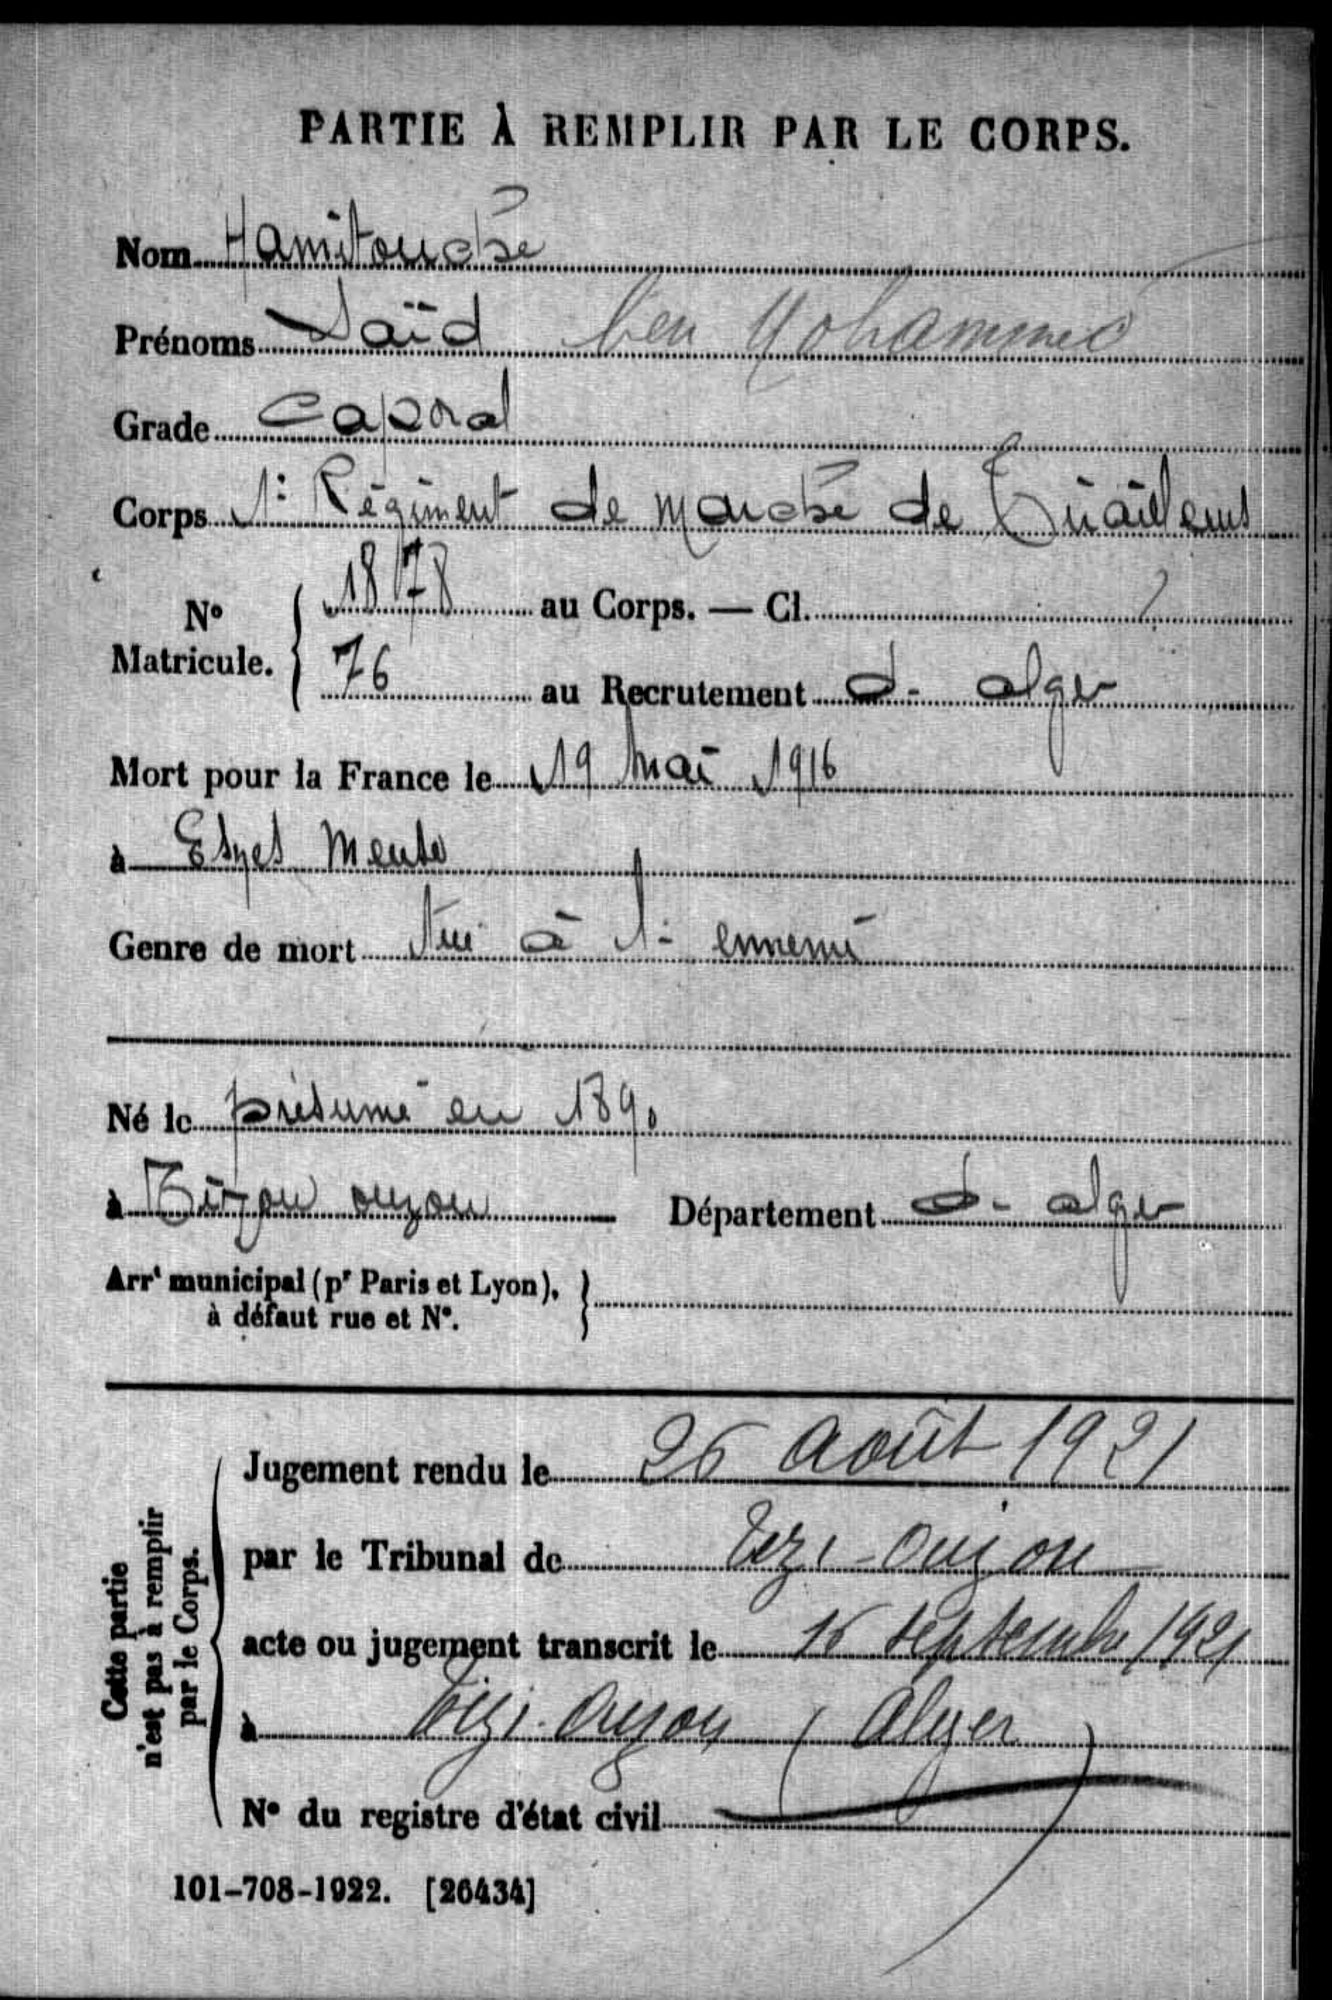 PARTIE À REMPLIR PAR LE CORPS.
Nom Hamitouche
Prénoms Saïd ben Mohammed
Grade Caporal
Corps 1: Régiment de marche de Tirailleurs
N° Matricule. { 1878 au Corps. — Cl.
76 au Recrutement d- alger
Mort pour la France le 19 mai 1916
à Esnes Meuse
Genre de mort tué à l- ennemi
Né le présumé en 1890
à Tizou ouzou Département d- alger
Arrᵗ municipal (pʳ Paris et Lyon),
à défaut rue et N°.
Cette partie
n'est pas à remplir
par le Corps.
Jugement rendu le 26 Août 1921
par le Tribunal de Tizi-Ouzou
acte ou jugement transcrit le 16 septembre 1921
à Tizi-Ouzou (Alger)
N° du registre d'état civil
101-708-1922. [26434]